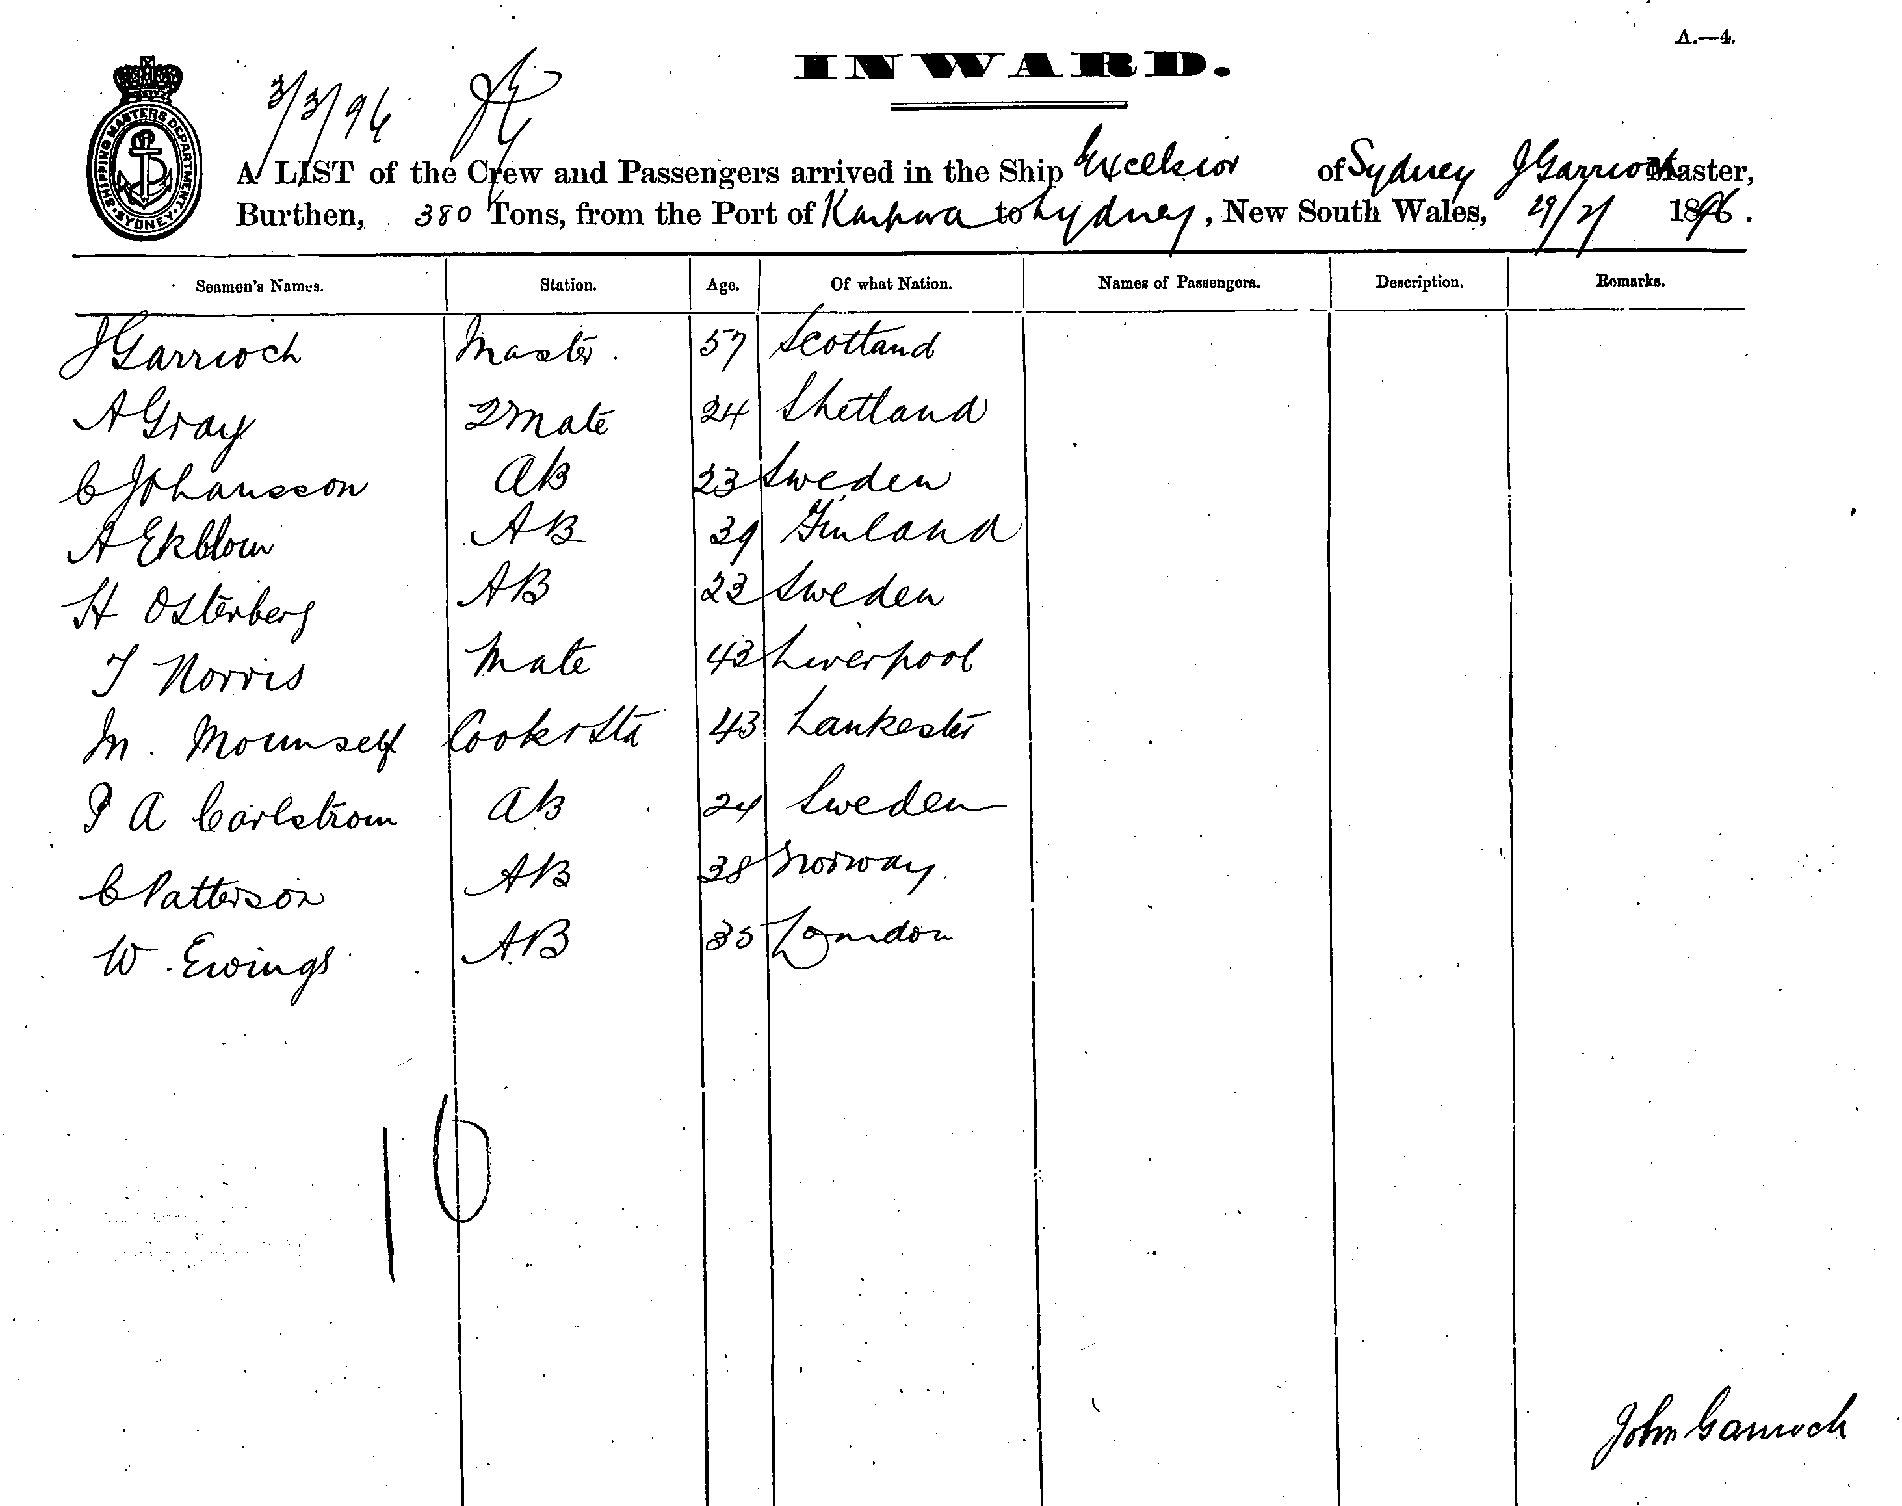 A.—4.
INWARD.
3/3/96
SHIPPING MASTERS DEPARTMENT SYDNEY
A LIST of the Crew and Passengers arrived in the Ship Excelsior of Sydney J Garrioch Master,
Burthen, 380 Tons, from the Port of Kaipara to Sydney, New South Wales, 29/2/ 1896.
Seamen's Names. Station. Age. Of what Nation. Names of Passengers. Description. Remarks.
J Garrioch Master. 57 Scotland
A Gray 2 Mate 24 Shetland
C Johansson AB 23 Sweden
A Ekblom AB 39 Finland
H Osterberg AB 23 Sweden
T Norris Mate 43 Liverpool
M. Mounself Cook & Std 43 Lankester
P A Carlstrom AB 24 Sweden
C Patterson AB 38 Norway.
W. Ewings AB 35 London
10
John Garrioch